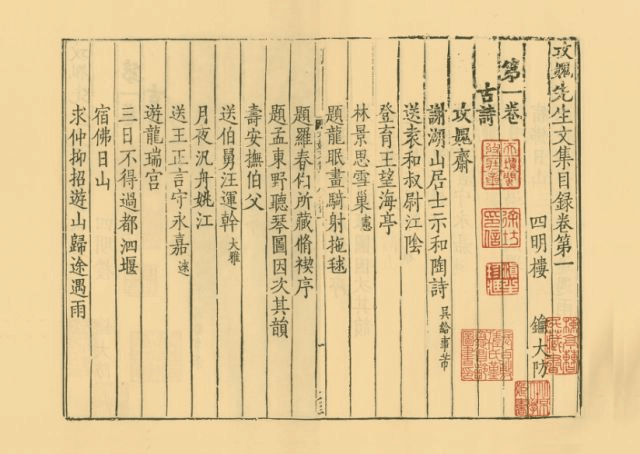 攻媿先生文集目録卷第一
四明樓 鑰大防
第一卷
古詩
攻媿齋
謝湖山居士示和陶詩 吴給事芾
送袁和叔尉江陰
登育王望海亭
林景思雪巢 憲
題龍眠畫騎射抱毬
題羅春伯所藏脩禊序
題孟東野聽琴圖因次其韻
壽安撫伯父
送伯舅汪運幹 大雅
月夜汎舟姚江
送王正言守永嘉 速
遊龍瑞宫
三日不得過都泗堰
宿佛日山
求仲抑招遊山歸途遇雨